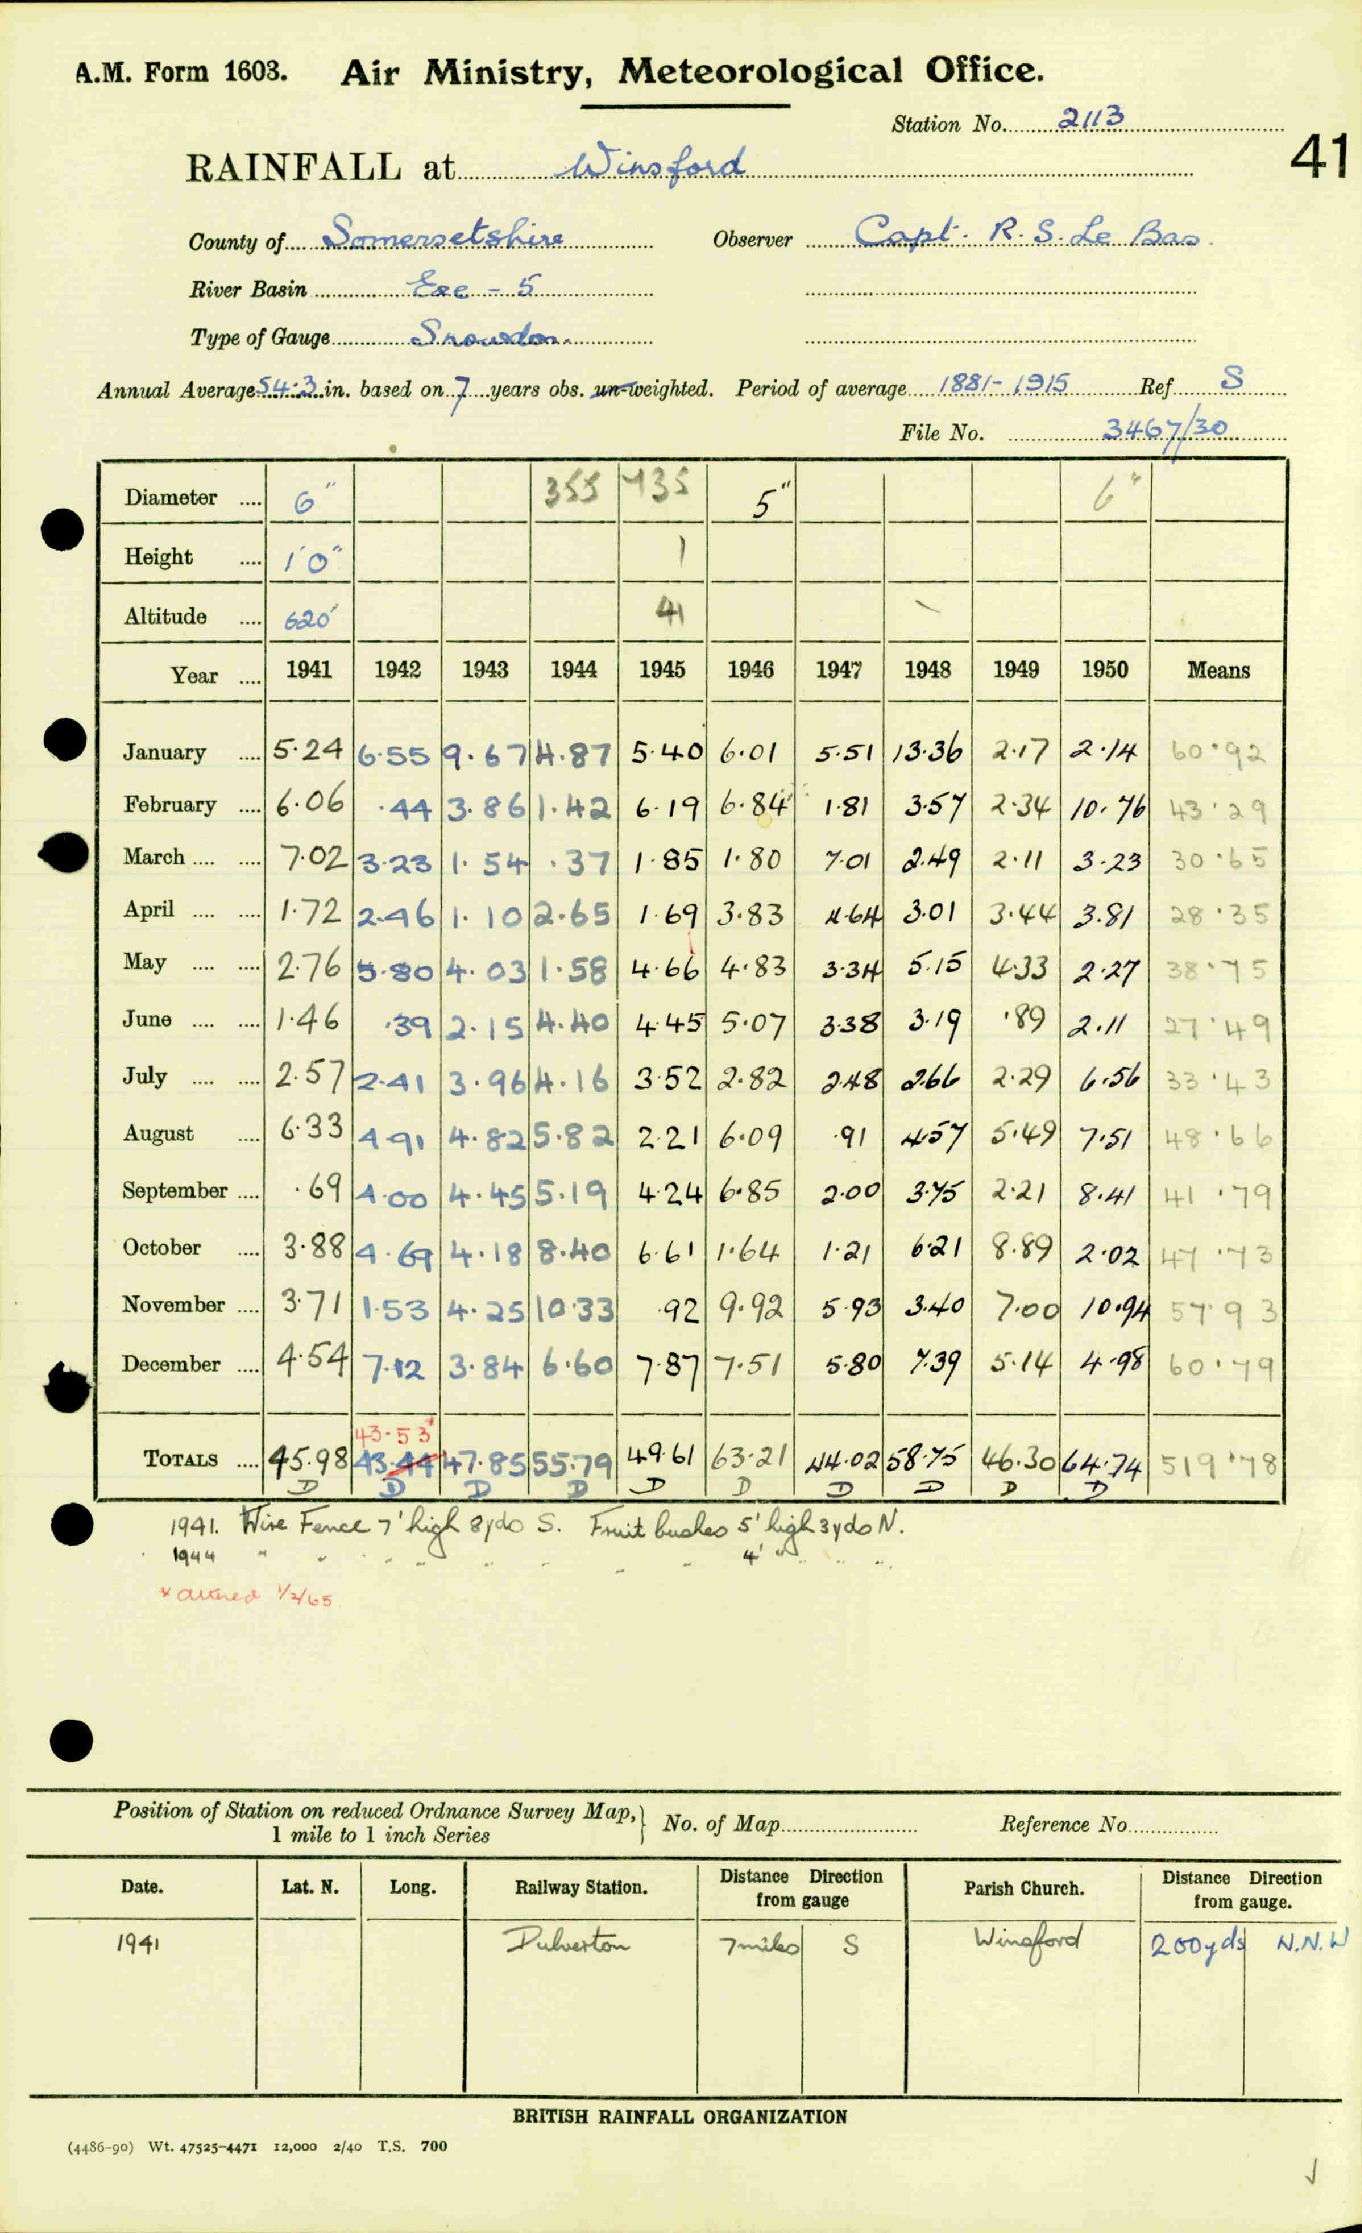 A.M. Form 1603. Air Ministry, Meteorological Office.
Station No. 2113
41
RAINFALL at Winsford
County of Somersetshire Observer Capt. R. S. Le Bas.
River Basin Exe - 5
Type of Gauge Snowdon.
Annual Average 54.3 in. based on 7 years obs. un-weighted. Period of average 1881-1915 Ref S
File No. 3467/30
Diameter 6" 355 735 5" 6"
Height 1'0" 1
Altitude 620' 41
Year 1941 1942 1943 1944 1945 1946 1947 1948 1949 1950 Means
January 5.24 6.55 9.67 4.87 5.40 6.01 5.51 13.36 2.17 2.14 60.92
February 6.06 .44 3.86 1.42 6.19 6.84 1.81 3.57 2.34 10.76 43.29
March 7.02 3.23 1.54 .37 1.85 1.80 7.01 2.49 2.11 3.23 30.65
April 1.72 2.46 1.10 2.65 1.69 3.83 4.64 3.01 3.44 3.81 28.35
May 2.76 5.80 4.03 1.58 4.66 4.83 3.34 5.15 4.33 2.27 38.75
June 1.46 .39 2.15 4.40 4.45 5.07 3.38 3.19 .89 2.11 27.49
July 2.57 2.41 3.96 4.16 3.52 2.82 2.48 2.66 2.29 6.56 33.43
August 6.33 4.91 4.82 5.82 2.21 6.09 .91 4.57 5.49 7.51 48.66
September .69 4.00 4.45 5.19 4.24 6.85 2.00 3.75 2.21 8.41 41.79
October 3.88 4.69 4.18 8.40 6.61 1.64 1.21 6.21 8.89 2.02 47.73
November 3.71 1.53 4.25 10.33 .92 9.92 5.93 3.40 7.00 10.94 57.93
December 4.54 7.12 3.84 6.60 7.87 7.51 5.80 7.39 5.14 4.98 60.79
43.53*
TOTALS 45.98 43.44 47.85 55.79 49.61 63.21 44.02 58.75 46.30 64.74 519.78
D D D D D D D D D D
1941. Wire Fence 7' high 8yds S. Fruit bushes 5' high 3yds N.
1944 " " " " " " " 4' " " "
1/2/65
Position of Station on reduced Ordnance Survey Map, 1 mile to 1 inch Series No. of Map Reference No.
Date. Lat. N. Long. Railway Station. Distance Direction from gauge Parish Church. Distance Direction from gauge.
1941 Dulverton 7 miles S Winsford 200yds N.N.W
BRITISH RAINFALL ORGANIZATION
(4486-90) Wt. 47525-4471 12,000 2/40 T.S. 700